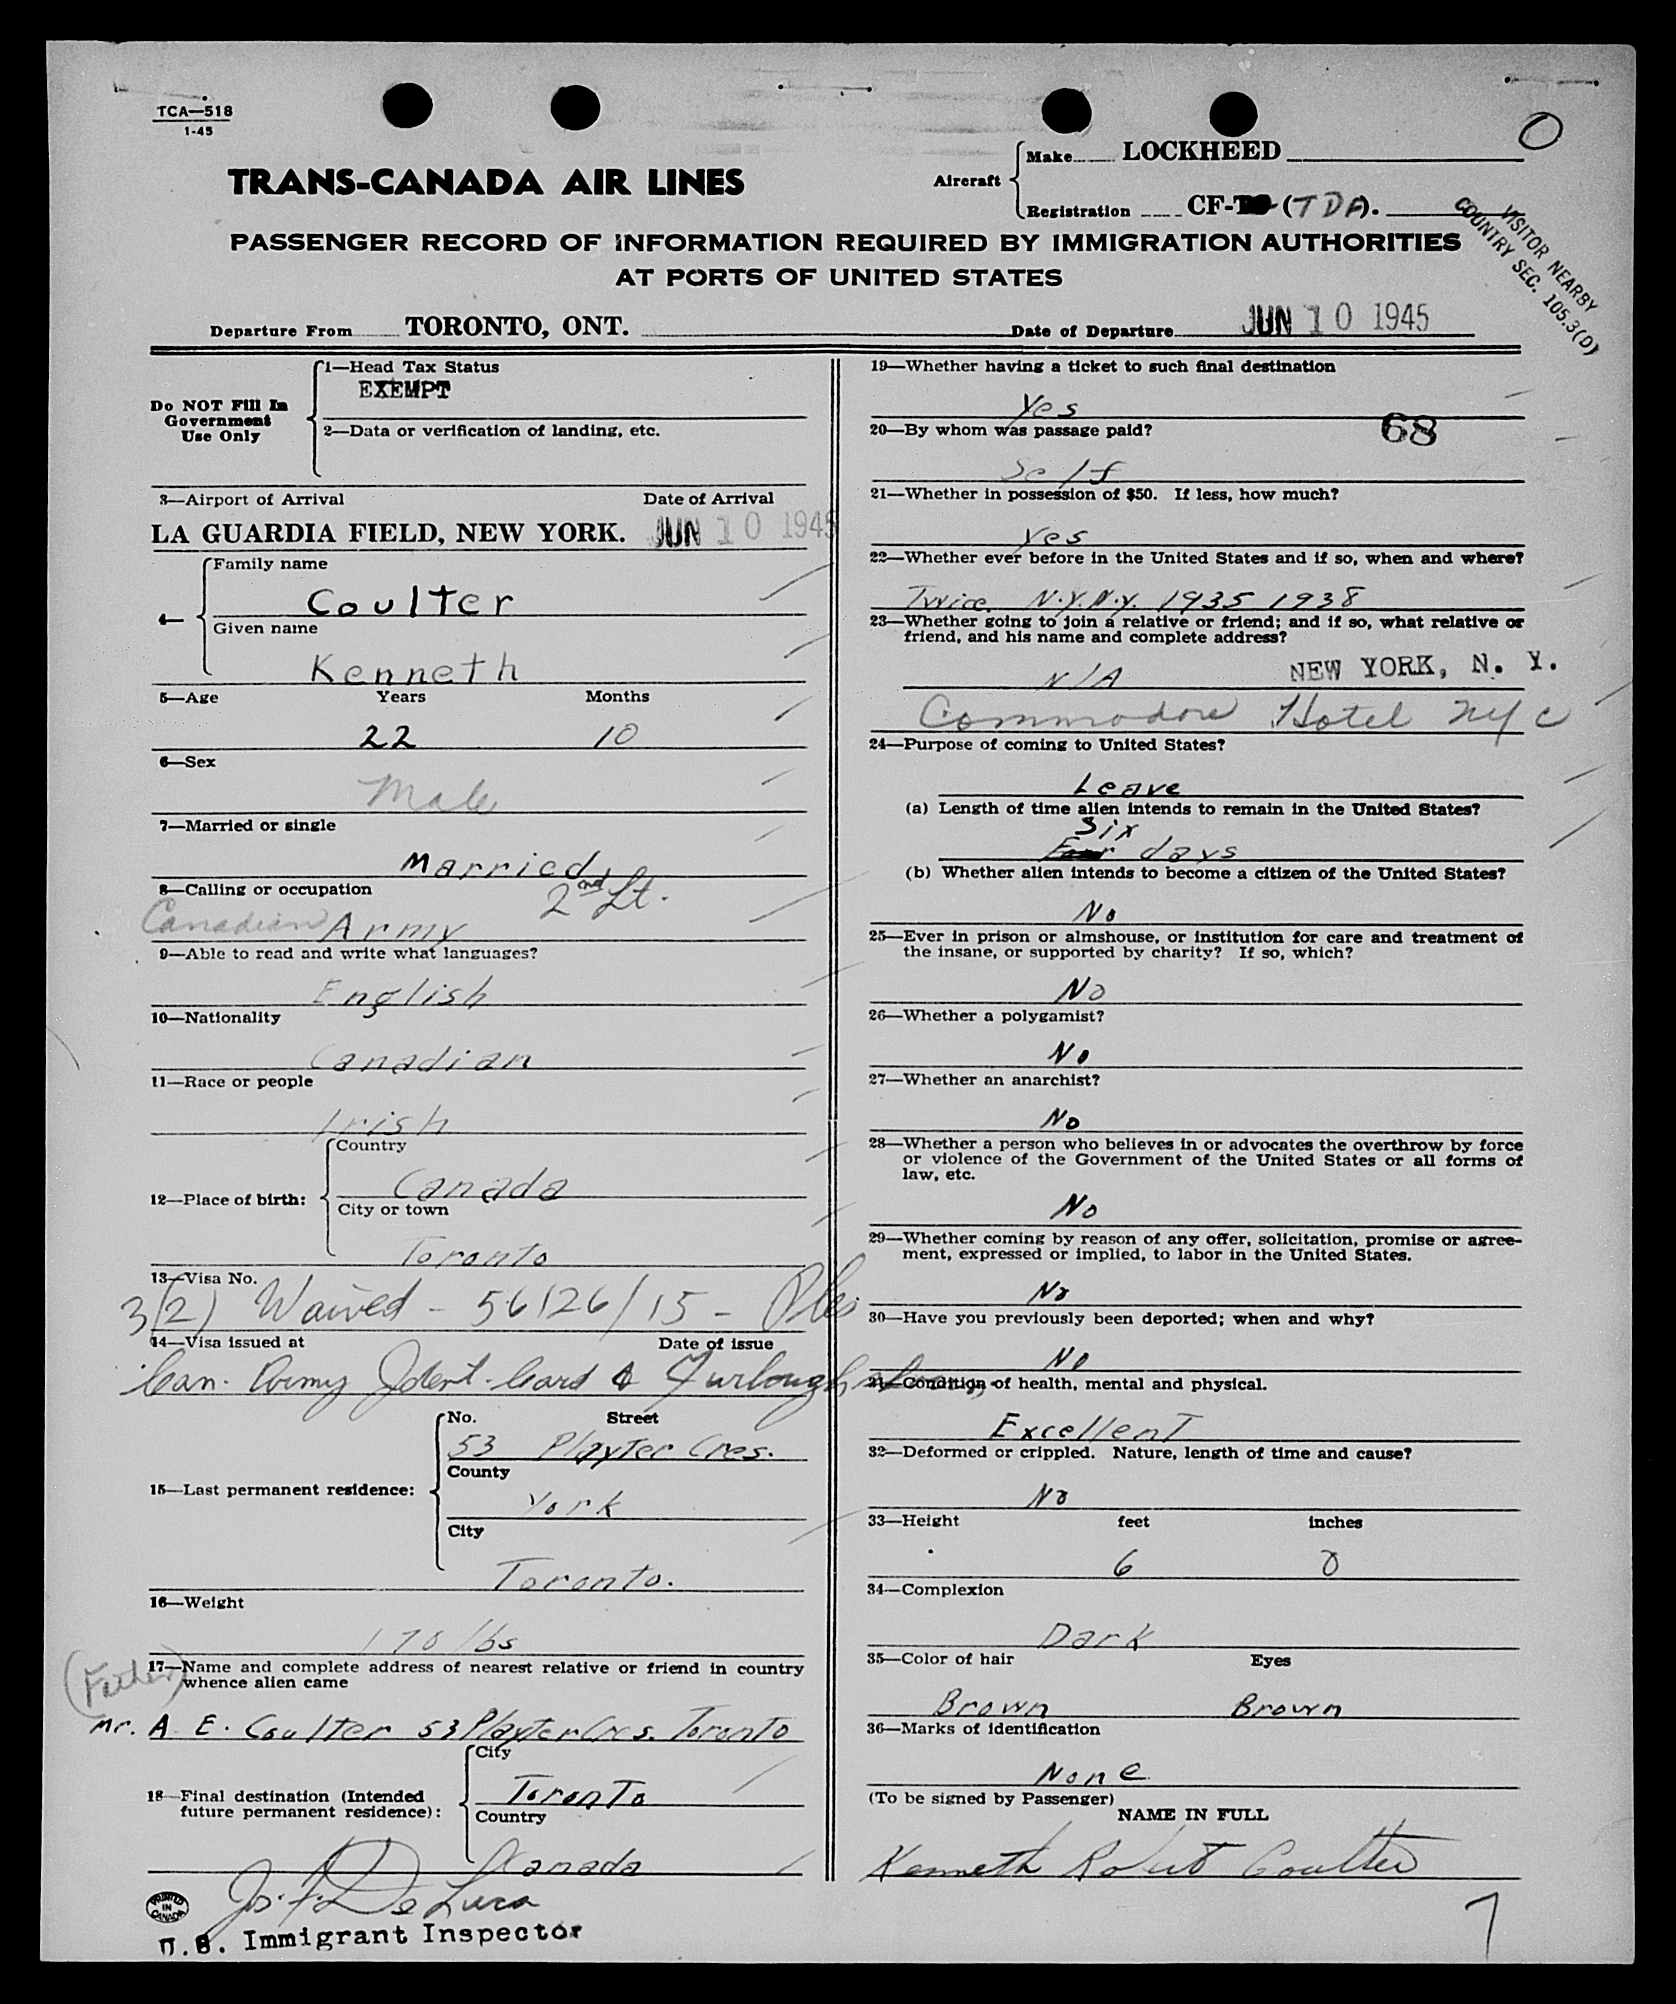 TCA—518
1-45
O
TRANS-CANADA AIR LINES
Aircraft
Make LOCKHEED
Registration CF- (TDA).
VISITOR NEARBY
COUNTRY SEC. 105.3(D)
PASSENGER RECORD OF INFORMATION REQUIRED BY IMMIGRATION AUTHORITIES
AT PORTS OF UNITED STATES
Departure From TORONTO, ONT. Date of Departure JUN 10 1945
Do NOT Fill In
Government
Use Only
1—Head Tax Status
EXEMPT
2—Data or verification of landing, etc.
3—Airport of Arrival Date of Arrival
LA GUARDIA FIELD, NEW YORK. JUN 10 1945
4—
Family name
Coulter
Given name
Kenneth
5—Age Years Months
22 10
6—Sex
Male
7—Married or single
Married
8—Calling or occupation
2nd Lt.
Canadian Army
9—Able to read and write what languages?
English
10—Nationality
Canadian
11—Race or people
Irish
12—Place of birth:
Country
Canada
City or town
Toronto
13—Visa No.
3(2) Waived - 56126/15 -
14—Visa issued at Date of issue
Can. Army Ident. Card & Furlough
15—Last permanent residence:
No. Street
53 Playter Cres.
County
York
City
Toronto.
16—Weight
170 lbs
(Father)
17—Name and complete address of nearest relative or friend in country
whence alien came
Mr. A. E. Coulter 53 Playter Cres. Toronto
18—Final destination (Intended
future permanent residence):
City
Toronto
Country
Canada
Jos. F. De Luca
U.S. Immigrant Inspector
PRINTED
IN
CANADA
19—Whether having a ticket to such final destination
Yes
20—By whom was passage paid?
68
Self
21—Whether in possession of $50. If less, how much?
Yes
22—Whether ever before in the United States and if so, when and where?
Twice. N.Y.N.Y. 1935 1938
23—Whether going to join a relative or friend; and if so, what relative or
friend, and his name and complete address?
N/A NEW YORK, N. Y.
Commodore Hotel NYC
24—Purpose of coming to United States?
Leave
(a) Length of time alien intends to remain in the United States?
Six
Four days
(b) Whether alien intends to become a citizen of the United States?
No
25—Ever in prison or almshouse, or institution for care and treatment of
the insane, or supported by charity? If so, which?
No
26—Whether a polygamist?
No
27—Whether an anarchist?
No
28—Whether a person who believes in or advocates the overthrow by force
or violence of the Government of the United States or all forms of
law, etc.
No
29—Whether coming by reason of any offer, solicitation, promise or agree-
ment, expressed or implied, to labor in the United States.
No
30—Have you previously been deported; when and why?
No
31—Condition of health, mental and physical.
Excellent
32—Deformed or crippled. Nature, length of time and cause?
No
33—Height feet inches
6 0
34—Complexion
Dark
35—Color of hair Eyes
Brown Brown
36—Marks of identification
None
(To be signed by Passenger)
NAME IN FULL
Kenneth Robert Coulter
7